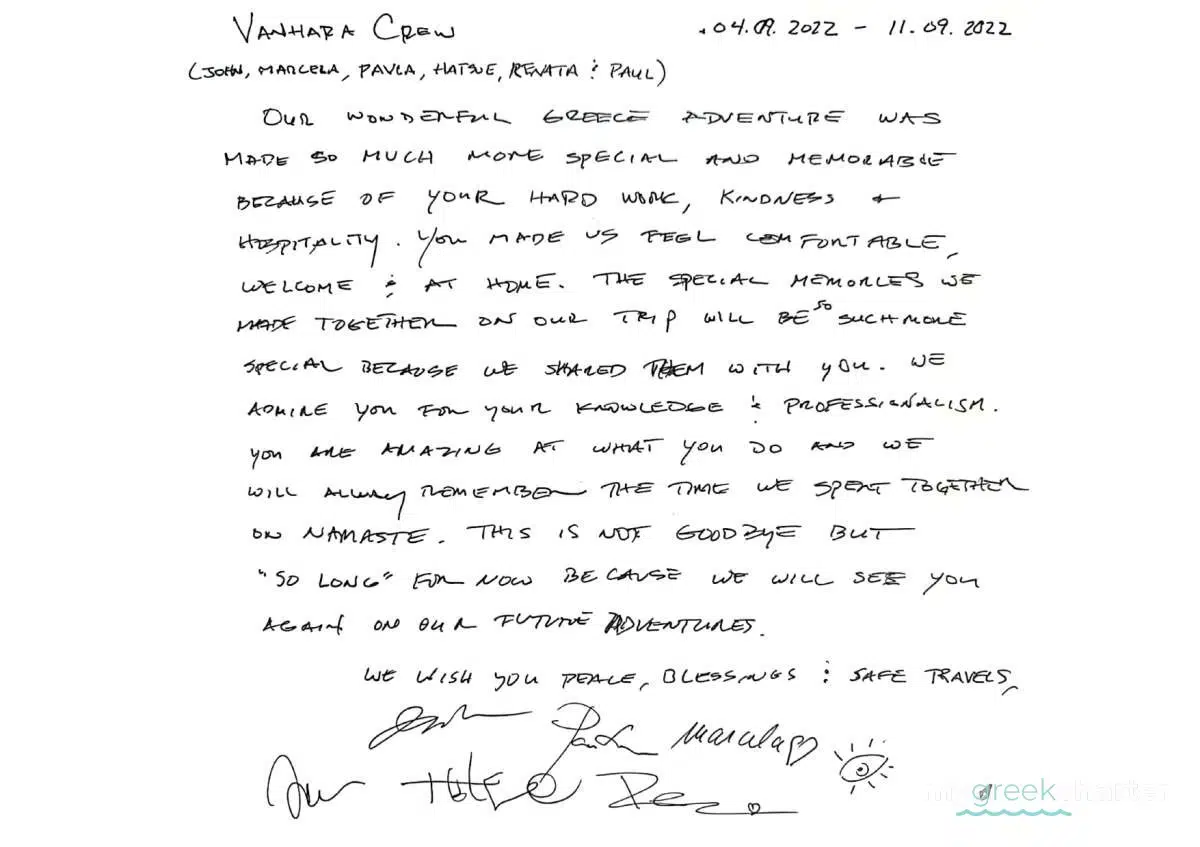 VANHARA CREW .04.09.2022 - 11.09.2022
(JOHN, MARCELA, PAVLA, HATSUE, RENATA & PAUL)
OUR WONDERFUL GREECE ADVENTURE WAS
MADE SO MUCH MORE SPECIAL AND MEMORABLE
BECAUSE OF YOUR HARD WORK, KINDNESS +
HOSPITALITY. YOU MADE US FEEL COMFORTABLE,
WELCOME & AT HOME. THE SPECIAL MEMORIES WE
MADE TOGETHER ON OUR TRIP WILL BE SO SUCH MORE
SPECIAL BECAUSE WE SHARED THEM WITH YOU. WE
ADMIRE YOU FOR YOUR KNOWLEDGE & PROFESSIONALISM.
YOU ARE AMAZING AT WHAT YOU DO AND WE
WILL ALWAYS REMEMBER THE TIME WE SPENT TOGETHER
ON NAMASTE. THIS IS NOT GOODBYE BUT
"SO LONG" FOR NOW BECAUSE WE WILL SEE YOU
AGAIN ON OUR FUTURE ADVENTURES.
WE WISH YOU PEACE, BLESSINGS & SAFE TRAVELS,
Marcela
my greek charter